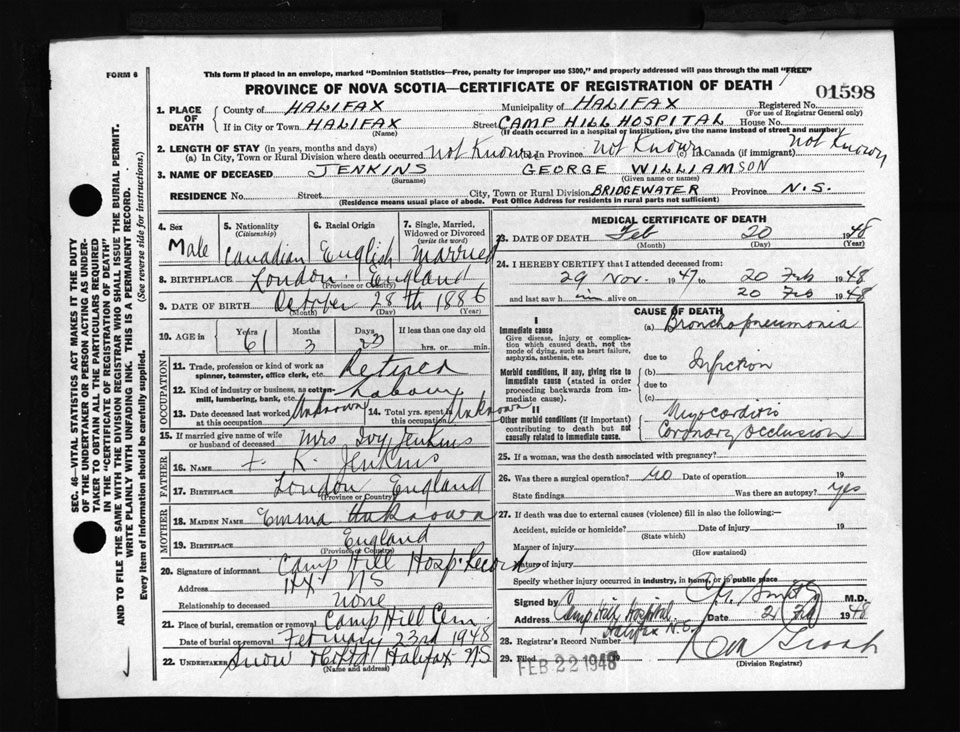 FORM 6
This form if placed in an envelope, marked "Dominion Statistics—Free, penalty for improper use $300," and property addressed will pass through the mail "FREE"
PROVINCE OF NOVA SCOTIA—CERTIFICATE OF REGISTRATION OF DEATH
01598
1. PLACE OF DEATH
County of HALIFAX Municipality of HALIFAX Registered No.
(For use of Registrar General only)
If in City or Town HALIFAX Street CAMP HILL HOSPITAL House No.
(If death occurred in a hospital or institution, give the name instead of street and number)
2. LENGTH OF STAY (in years, months and days)
(a) In City, Town or Rural Division where death occurred Not Known (b) in Province Not Known (c) in Canada (if immigrant) Not Known
3. NAME OF DECEASED JENKINS GEORGE WILLIAMSON
(Surname) (Given name or names)
RESIDENCE No. Street City, Town or Rural Division BRIDGEWATER Province N.S.
(Residence means usual place of abode. Post Office Address for residents in rural parts not sufficient)
4. Sex Male
5. Nationality (Citizenship) Canadian
6. Racial Origin English
7. Single, Married, Widowed or Divorced (write the word) Married
8. BIRTHPLACE London England
(Province or Country)
9. DATE OF BIRTH October 28th 1886
(Month) (Day) (Year)
10. AGE in Years Months Days If less than one day old
61 3 23 hrs. or min.
OCCUPATION
11. Trade, profession or kind of work as spinner, teamster, office clerk, etc. Retired
12. Kind of industry or business, as cotten-mill, lumbering, bank, etc. Labour
13. Date deceased last worked at this occupation Unknown 14. Total yrs. spent in this occupation Unknown
15. If married give name of wife or husband of deceased Mrs Ivy Jenkins
FATHER
16. NAME K. Jenkins
17. BIRTHPLACE London England
(Province or Country)
MOTHER
18. MAIDEN NAME Emma Unknown
19. BIRTHPLACE England
(Province or Country)
20. Signature of informant Camp Hill Hosp. Record
Address Hx NS
Relationship to deceased none
21. Place of burial, cremation or removal Camp Hill Cem.
Date of burial or removal February 23rd 1948
22. UNDERTAKER Snow Halifax NS
(Name and address)
MEDICAL CERTIFICATE OF DEATH
23. DATE OF DEATH Feb 20 1948
(Month) (Day) (Year)
24. I HEREBY CERTIFY that I attended deceased from:
29 Nov. 1947 to 20 Feb 1948
and last saw him alive on 20 Feb 1948
CAUSE OF DEATH
I
Immediate cause (a) Bronchopneumonia
Give disease, injury or complication which caused death, not the mode of dying, such as heart failure, asphyxia, asthenia, etc.
due to
Morbid conditions, if any, giving rise to immediate cause (stated in order proceeding backwards from immediate).
(b) Infection
due to
(c)
II
Other morbid conditions (if important) contributing to death but not causally related to immediate cause.
Myocarditis
Coronary Occlusion
25. If a woman, was the death associated with pregnancy?
26. Was there a surgical operation? No Date of operation 19
State findings Was there an autopsy? yes
27. If death was due to external causes (violence) fill in also the following:—
Accident, suicide or homicide? Date of injury 19
(State which)
Manner of injury
(How sustained)
Nature of injury
Specify whether injury occurred in industry, in home, or in public place
Signed by M.D.
Address Camp Hill Hospital, Halifax N.S. Date 21 Feb 1948
28. Registrar's Record Number
29. Filed FEB 22 1948
(Division Registrar)
SEC. 46—VITAL STATISTICS ACT MAKES IT THE DUTY OF THE UNDERTAKER OR PERSON ACTING AS UNDERTAKER TO OBTAIN ALL THE PARTICULARS REQUIRED IN THE "CERTIFICATE OF REGISTRATION OF DEATH" AND TO FILE THE SAME WITH THE DIVISION REGISTRAR WHO SHALL ISSUE THE BURIAL PERMIT.
WRITE PLAINLY WITH UNFADING INK. THIS IS A PERMANENT RECORD.
Every item of Information should be carefully supplied. (See reverse side for instructions.)